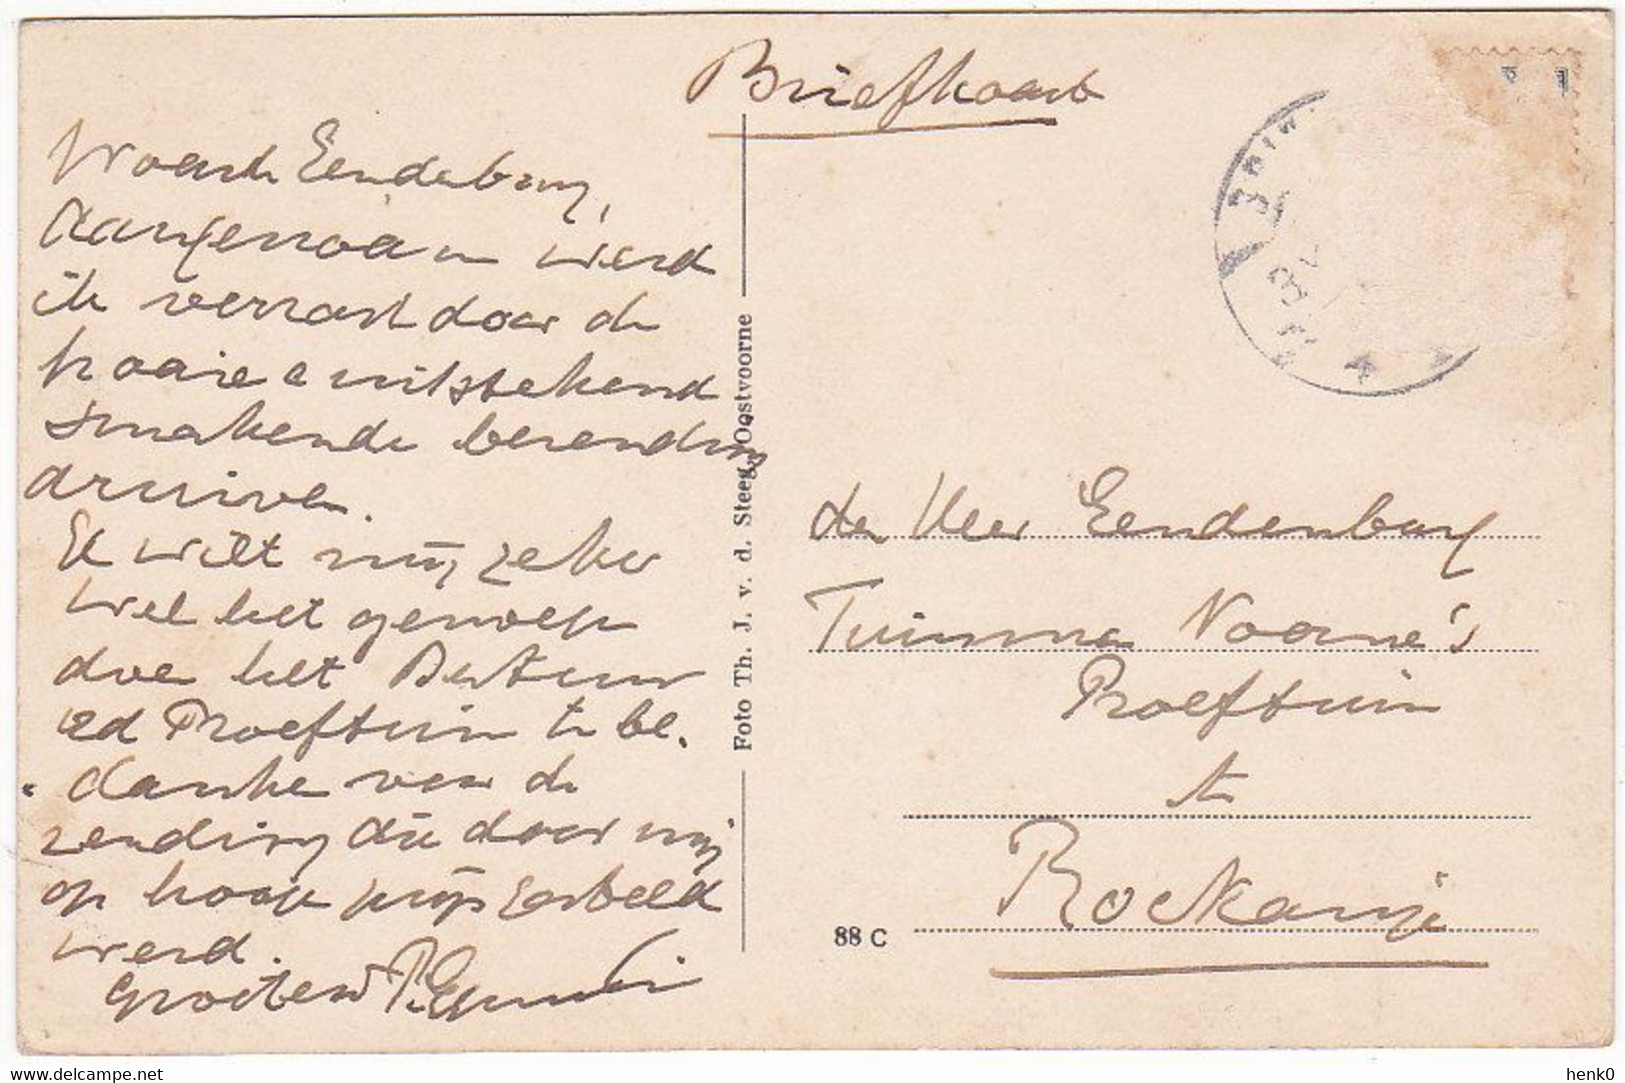 Briefkaart
Waarde Eendenburg,
Aangenaam werd
ik verrast door de
fraaie e uitstekend
smakende bezending
druiven.
U wilt mij zeker
wel het genoegen
doen het Bestuur
v/d Proeftuin te be-
danken voor de
zending die door mij
op hoog prijs gesteld
werd.
Groetend P.
Foto Th. J. v. d. Steeg, Oostvoorne
den Heer Eendenburg
Tuinman Voorne's
Proeftuin
te
Rockanje
88 C
henk0
www.delcampe.net